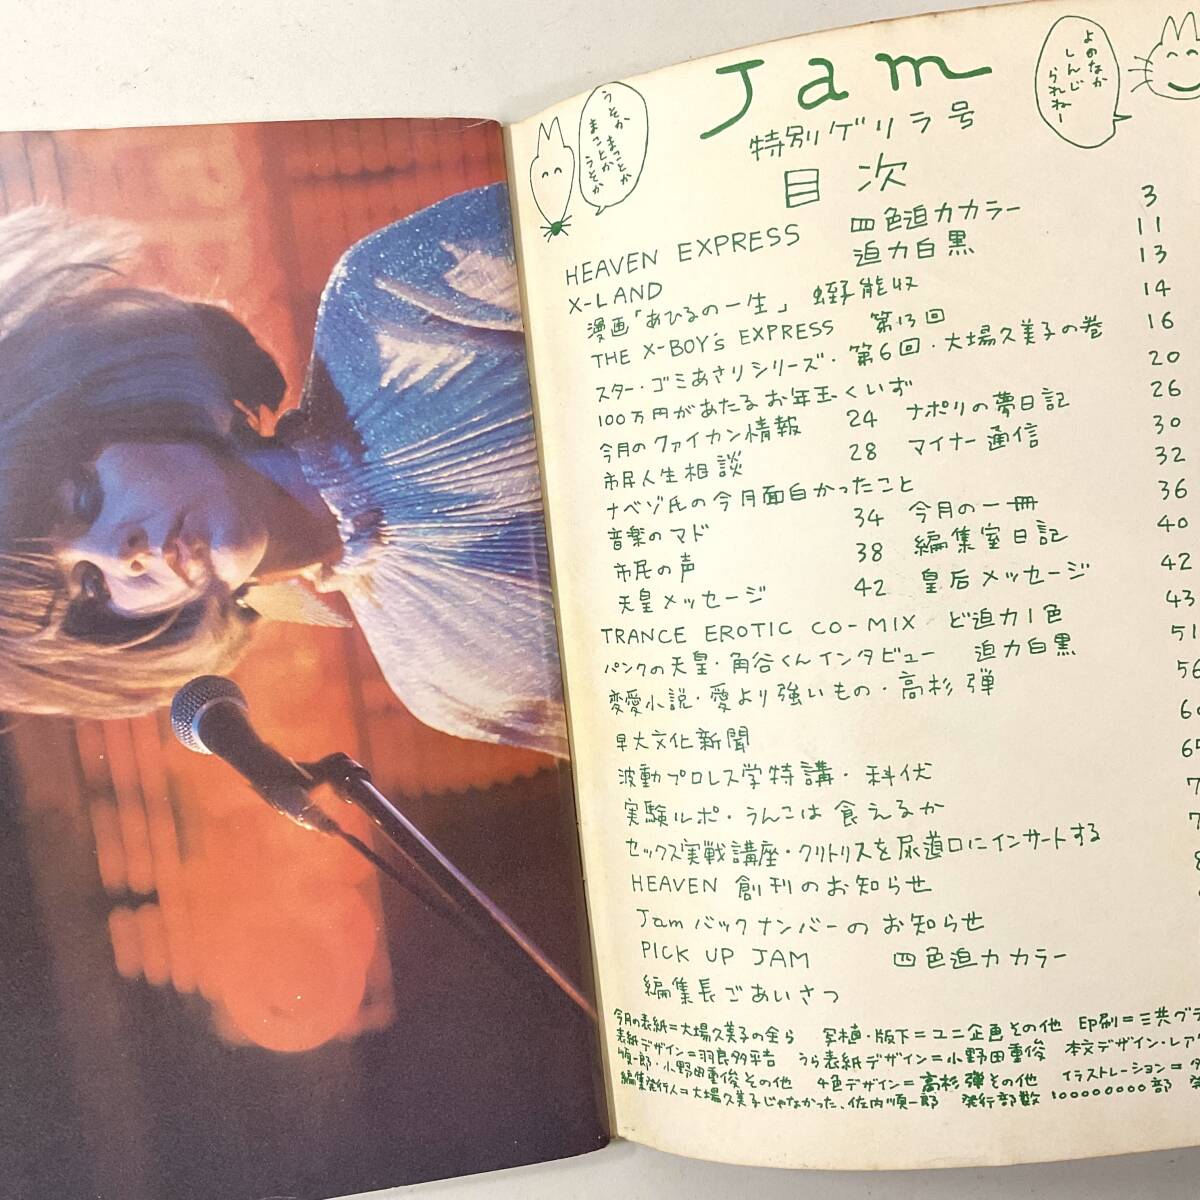 Jam
特別ゲリラ号
目次
うそか まことか
まことか うそか
よのなか
しんじ
られねー
HEAVEN EXPRESS 四色迫力カラー 3
X-LAND 迫力白黒 11
漫画「あひるの一生」 蛭子能収 13
THE X-BOY's EXPRESS 第13回 14
スター・ゴミあさりシリーズ・第6回・大場久美子の巻 16
100万円があたるお年玉くいず 20
今月のクァイカン情報 24 ナポリの夢日記 26
市民人生相談 28 マイナー通信 30
ナベゾ氏の今月面白かったこと 32
音楽のマド 34 今月の一冊 36
市民の声 38 編集室日記 40
天皇メッセージ 42 皇后メッセージ 42
TRANCE EROTIC CO-MIX ど迫力1色 43
パンクの天皇・角谷くんインタビュー 迫力白黒 51
変愛小説・愛より強いもの・高杉弾 56
早大文化新聞
波動プロレス学特講・科伏
実験ルポ・うんこは食えるか
セックス実戦講座・クリトリスを尿道口にインサートする
HEAVEN 創刊のお知らせ
Jam バックナンバーのお知らせ
PICK UP JAM 四色迫力カラー
編集長ごあいさつ
今月の表紙=大場久美子の全ら 写植・版下=ユニ企画その他 印刷=三共グラ
表紙デザイン=羽良多平吉 うら表紙デザイン=小野田重俊 本文デザイン・レア
順一郎・小野田重俊その他 4色デザイン=高杉弾その他 イラストレーション=
編集発行人=大場久美子じゃなかった、佐内順一郎 発行部数 1000000000部